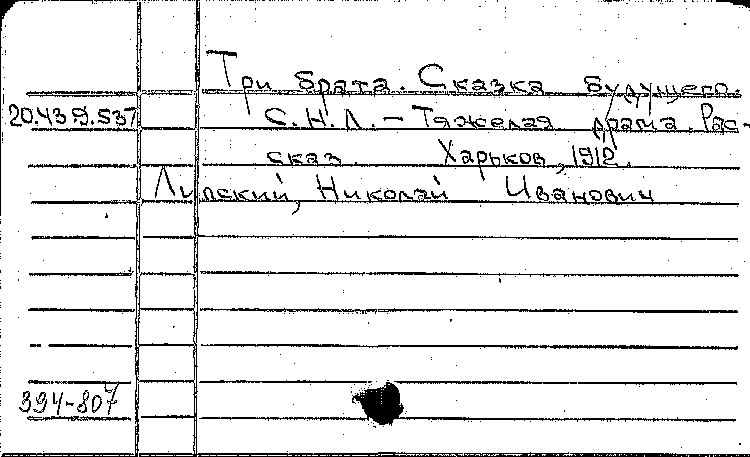 Три брата. Сказка будущего.
20.43.9.537 С.Н.Л. – Тяжелая драма. Рас-
сказ. Харьков, 1912.
Липский, Николай Иванович
394-807